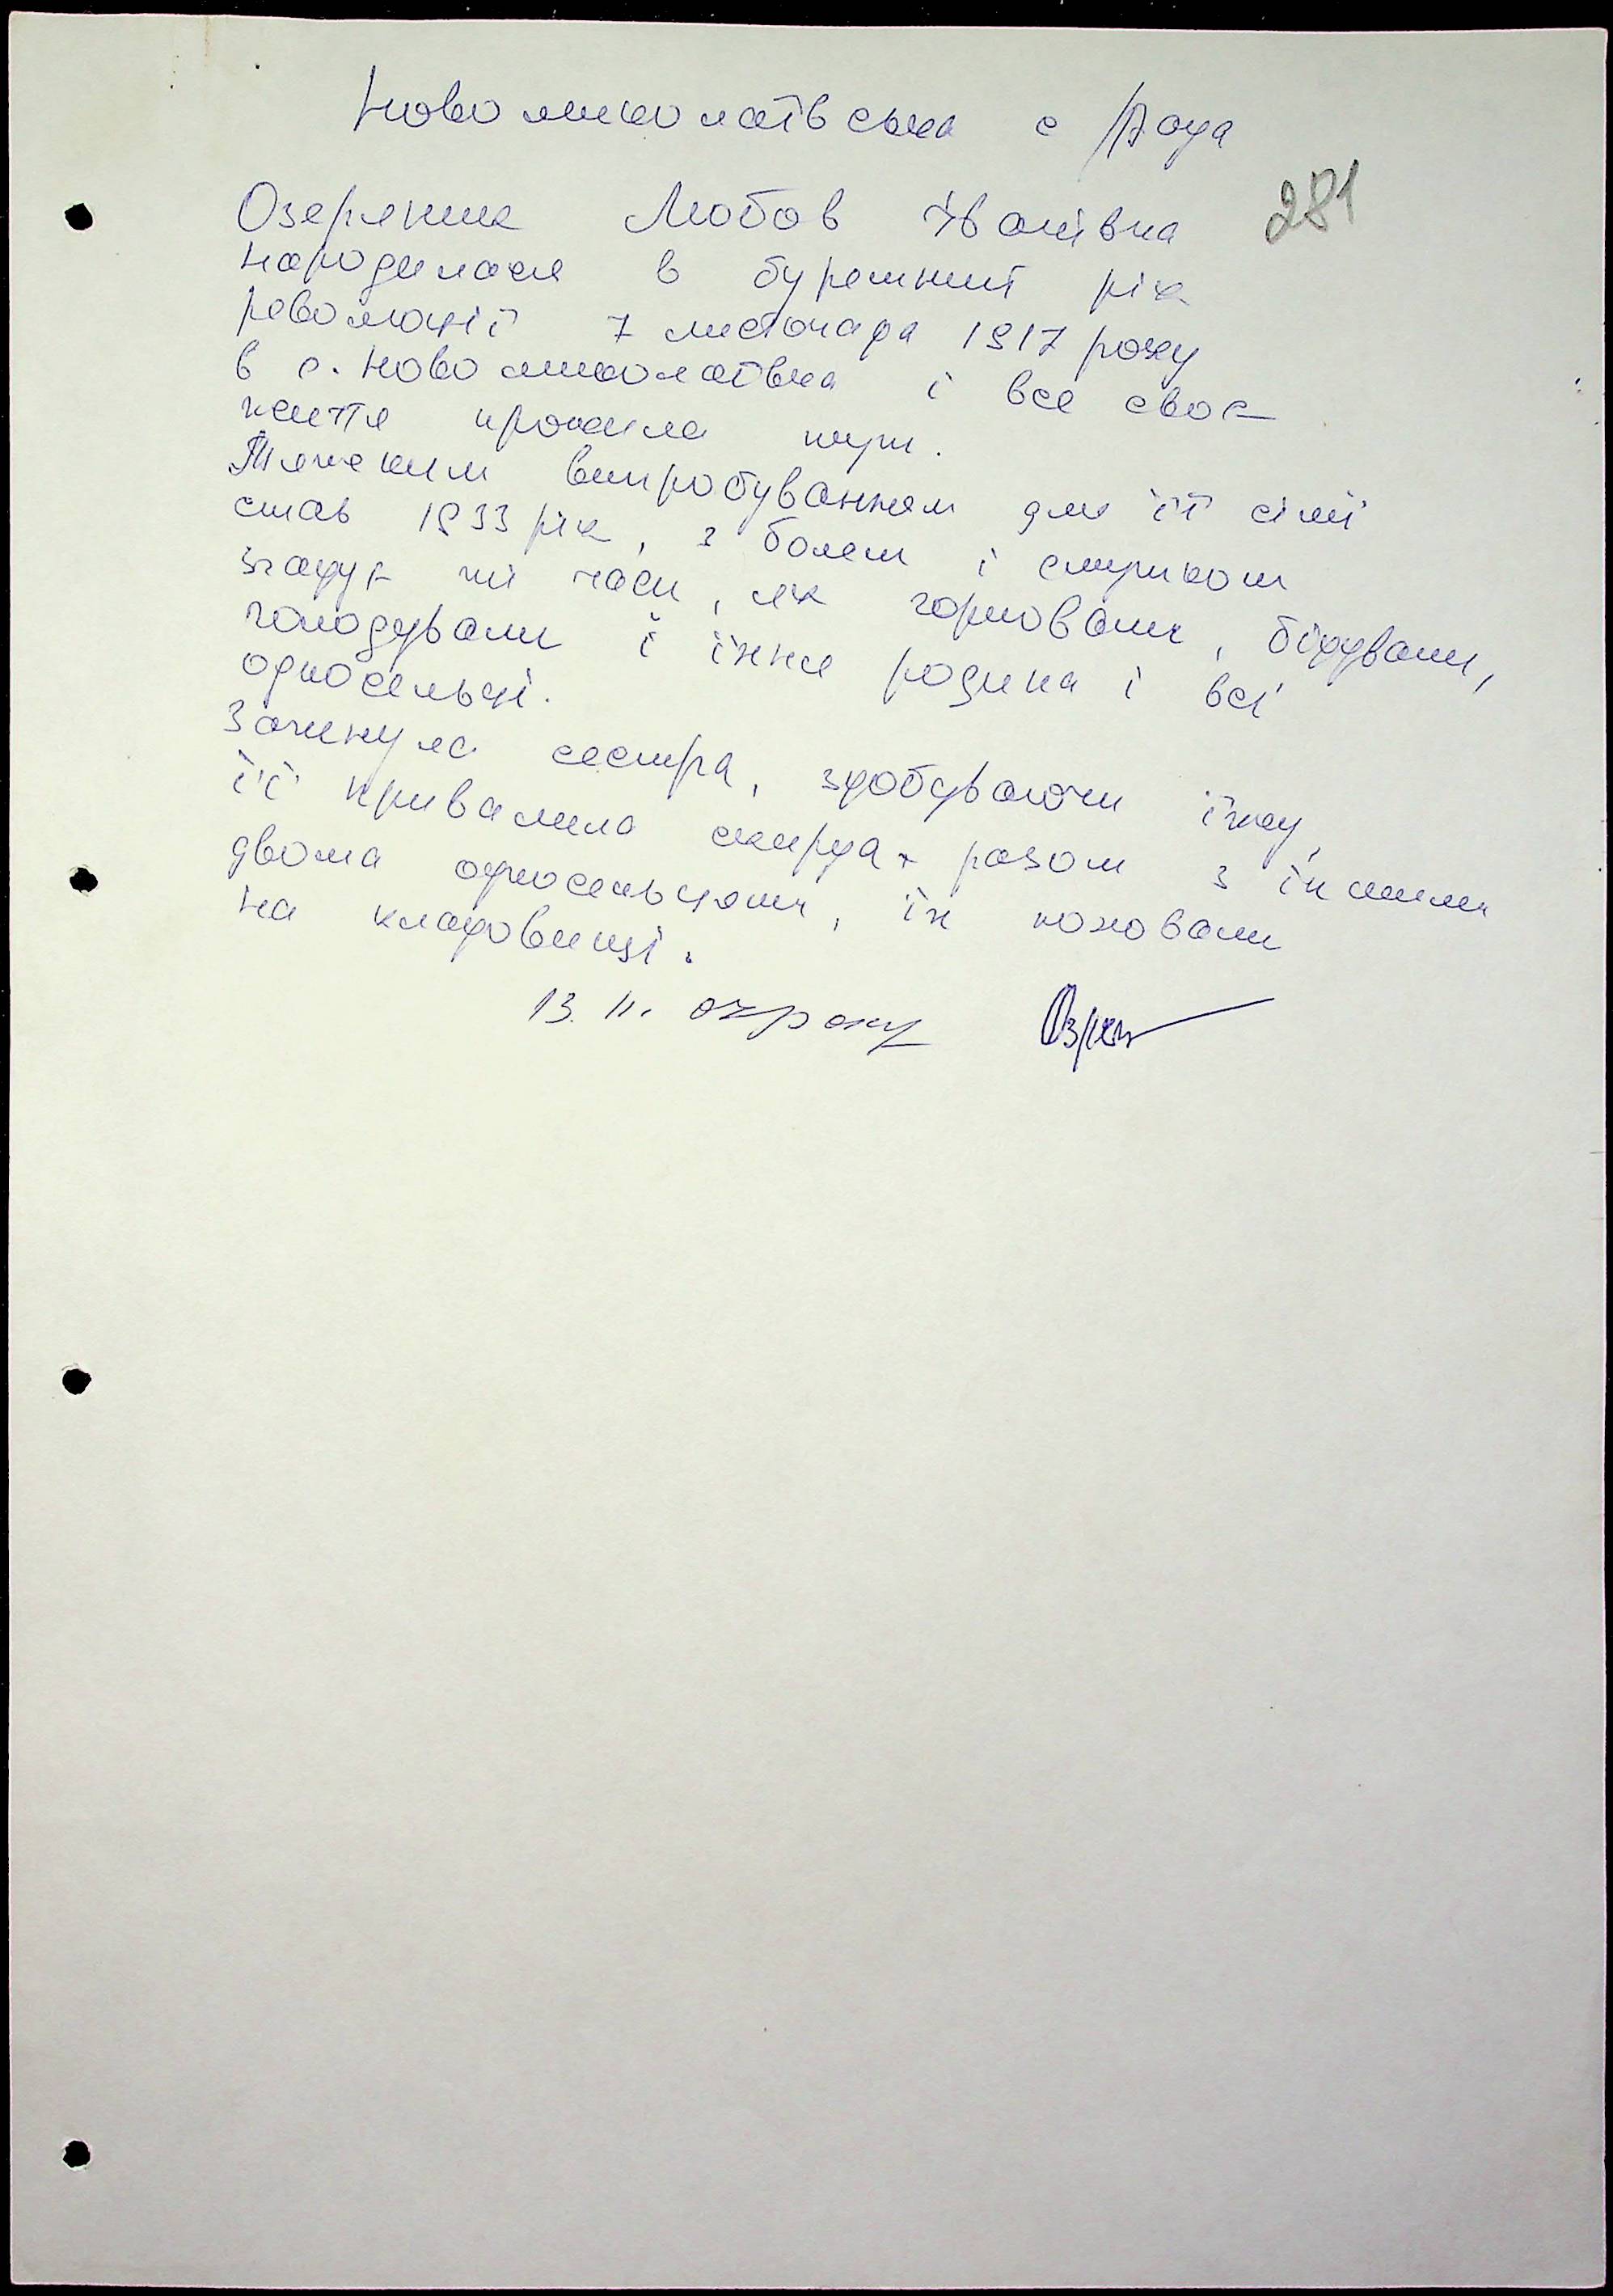 Новомиколаївська с/рада
281
Озеряник Любов Іванівна
народилася в буремний рік
революції 7 листопада 1917 року
в с. Новомиколаївка і все своє
життя прожила тут.
Тяжким випробуванням для її сімї
став 1933 рік, з болем і смутком
згадує ті часи, як горювали, бідували,
голодували і їхня родина і всі
односельці.
Загинула сестра, здобуваючи їжу,
її привалила скирда разом з іншими
двома односельцями, їх поховали
на кладовищі.
13. 11. 07 року